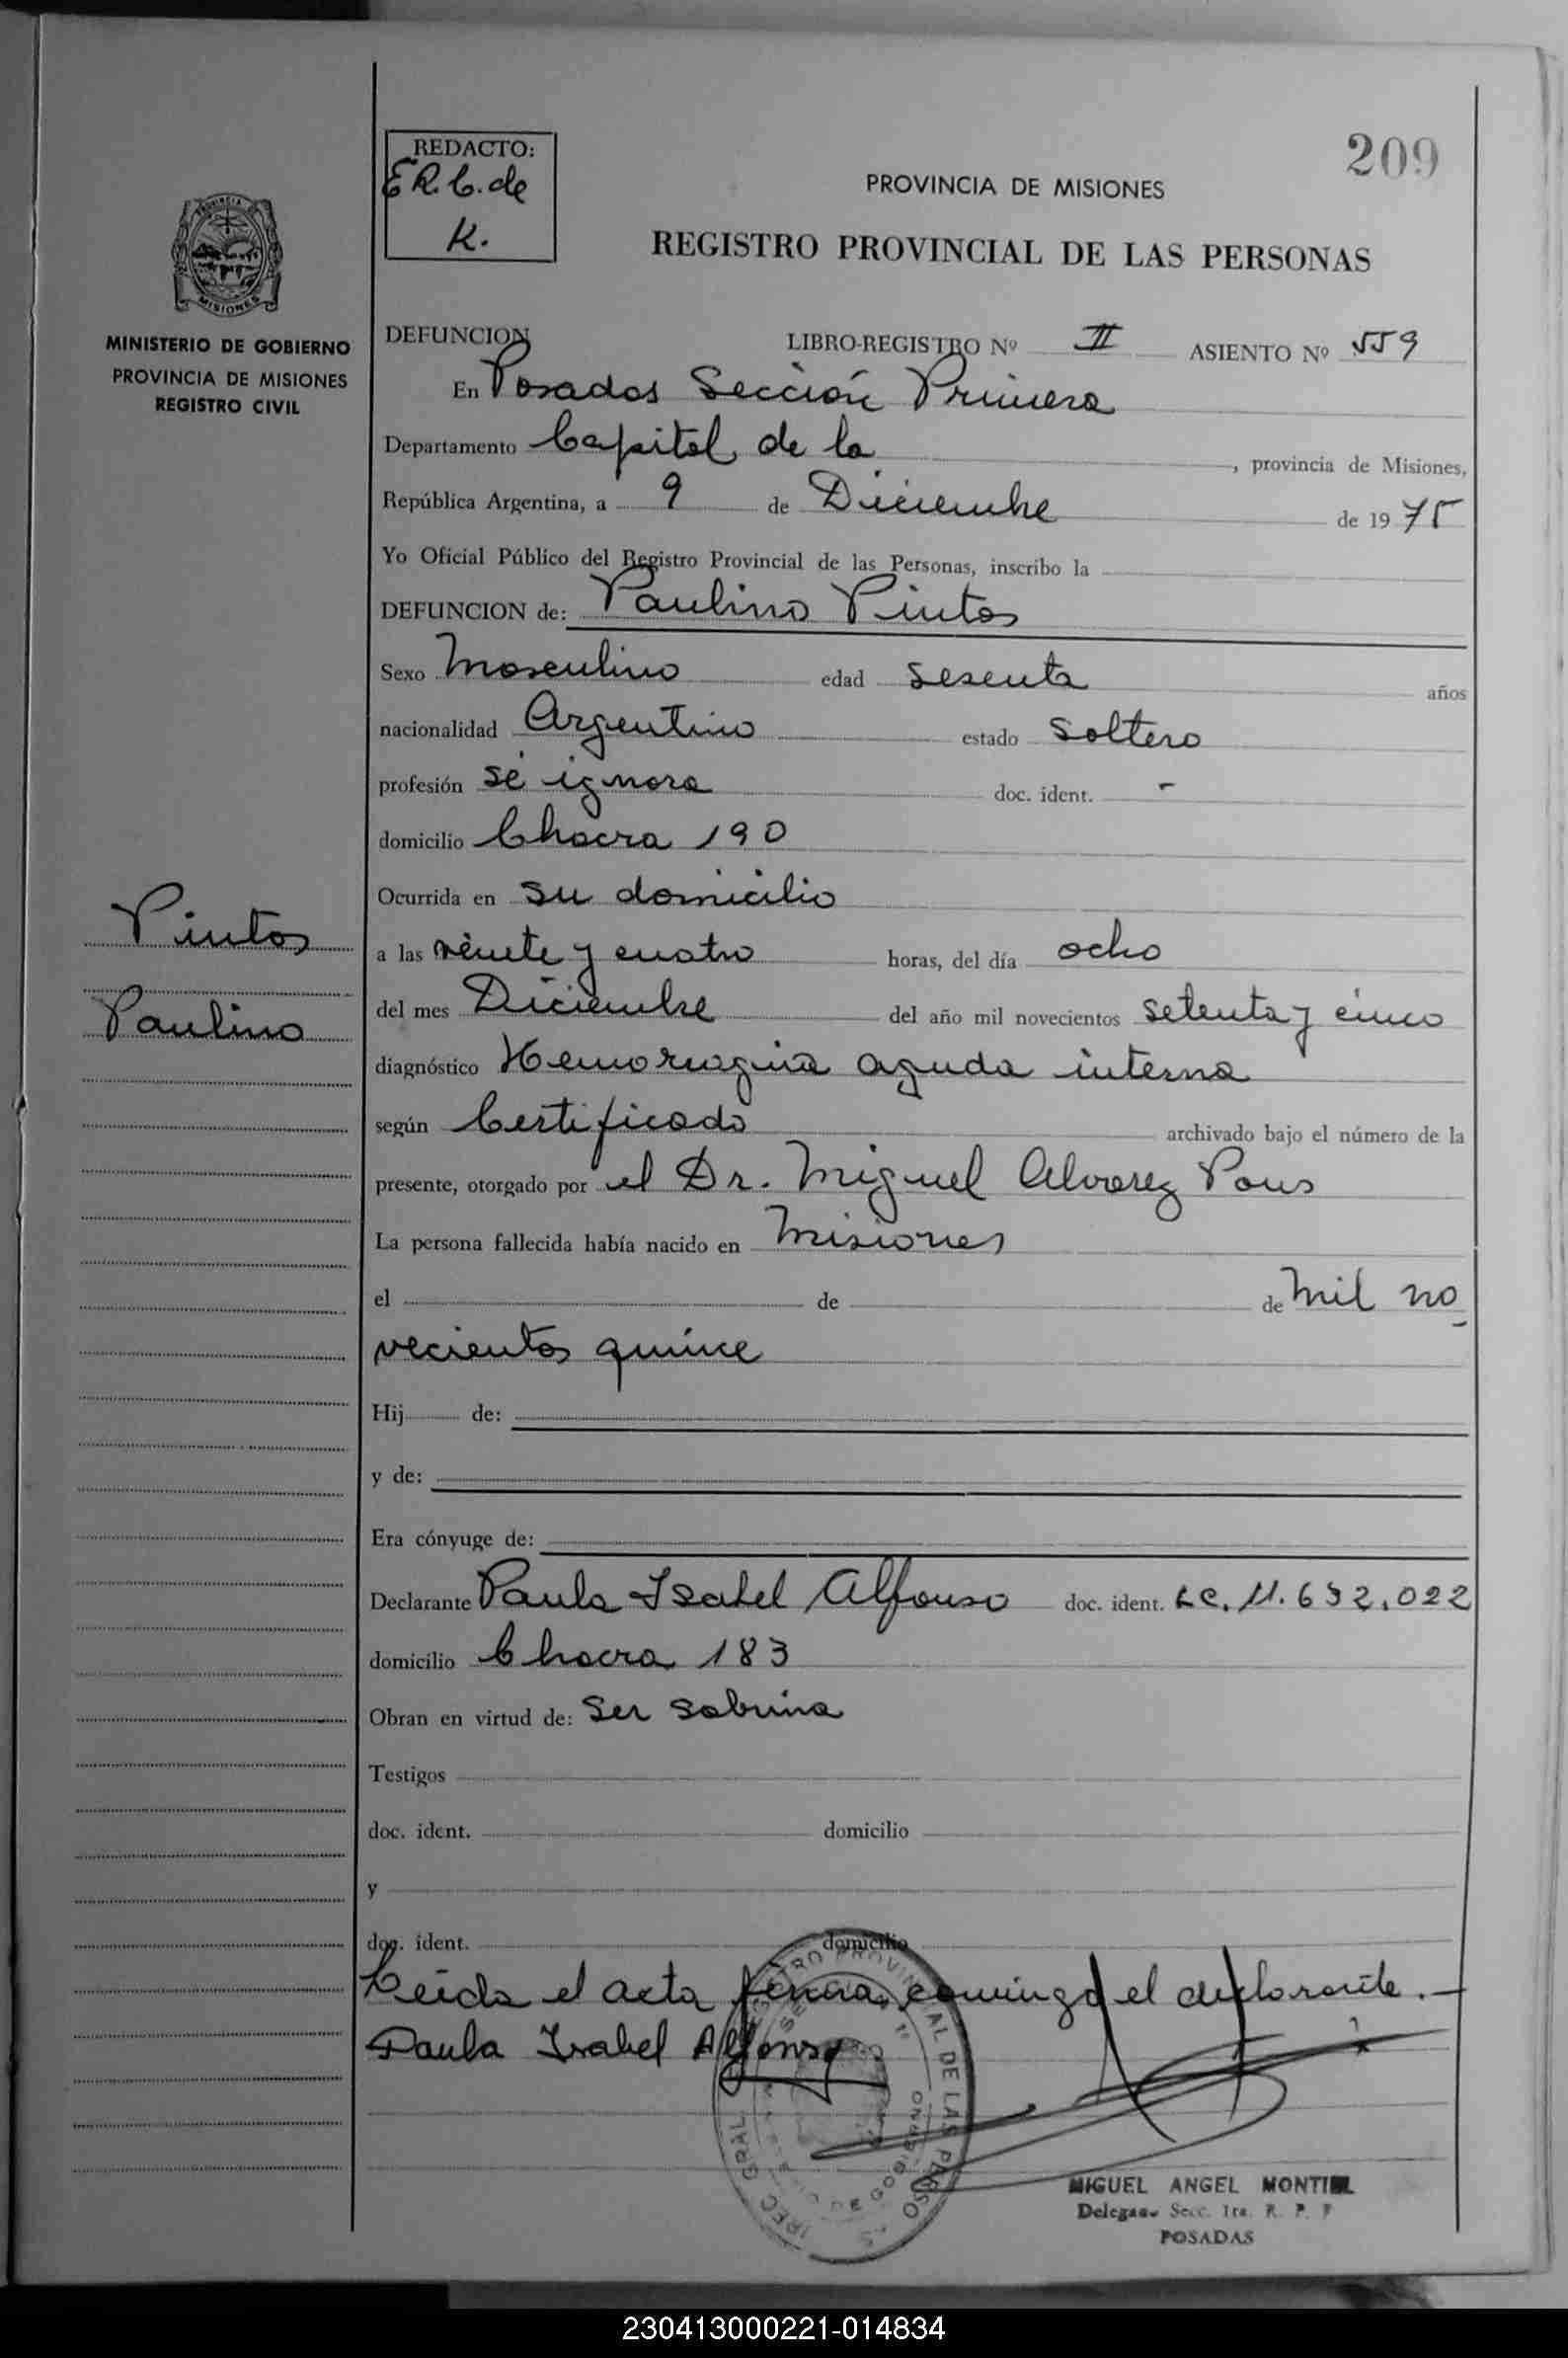 209
REDACTO:
E R. C. de
K.
PROVINCIA DE MISIONES
REGISTRO PROVINCIAL DE LAS PERSONAS
PROVINCIA DE
MISIONES
MINISTERIO DE GOBIERNO
PROVINCIA DE MISIONES
REGISTRO CIVIL
DEFUNCION LIBRO-REGISTRO Nº II ASIENTO Nº 559
En Posadas Sección Primera
Departamento Capital de la, provincia de Misiones,
República Argentina, a 9 de Diciembre de 1975
Yo Oficial Público del Registro Provincial de las Personas, inscribo la
DEFUNCION de: Paulino Pintos
Sexo Masculino edad sesenta años
nacionalidad Argentino estado soltero
profesión se ignora doc. ident. -
domicilio Chacra 190
Ocurrida en su domicilio
Pintos
Paulino
a las veinte y cuatro horas, del día ocho
del mes Diciembre del año mil novecientos setenta y cinco
diagnóstico Hemorragia aguda interna
según Certificado archivado bajo el número de la
presente, otorgado por el Dr. Miguel Alvarez Pous
La persona fallecida había nacido en Misiones
el de de mil no
vecientos quince
Hij de:
y de:
Era cónyuge de:
Declarante Paula Isabel Alfonso doc. ident. LC. 11.632.022
domicilio Chacra 183
Obran en virtud de: ser sobrina
Testigos
doc. ident. domicilio
y
doc. ident. domicilio
Leida el acta firma conmigo el declarante.-
Paula Isabel Alfonso
MIGUEL ANGEL MONTIEL
Delegado Secc. 1ra. R. P. P
POSADAS
230413000221-014834